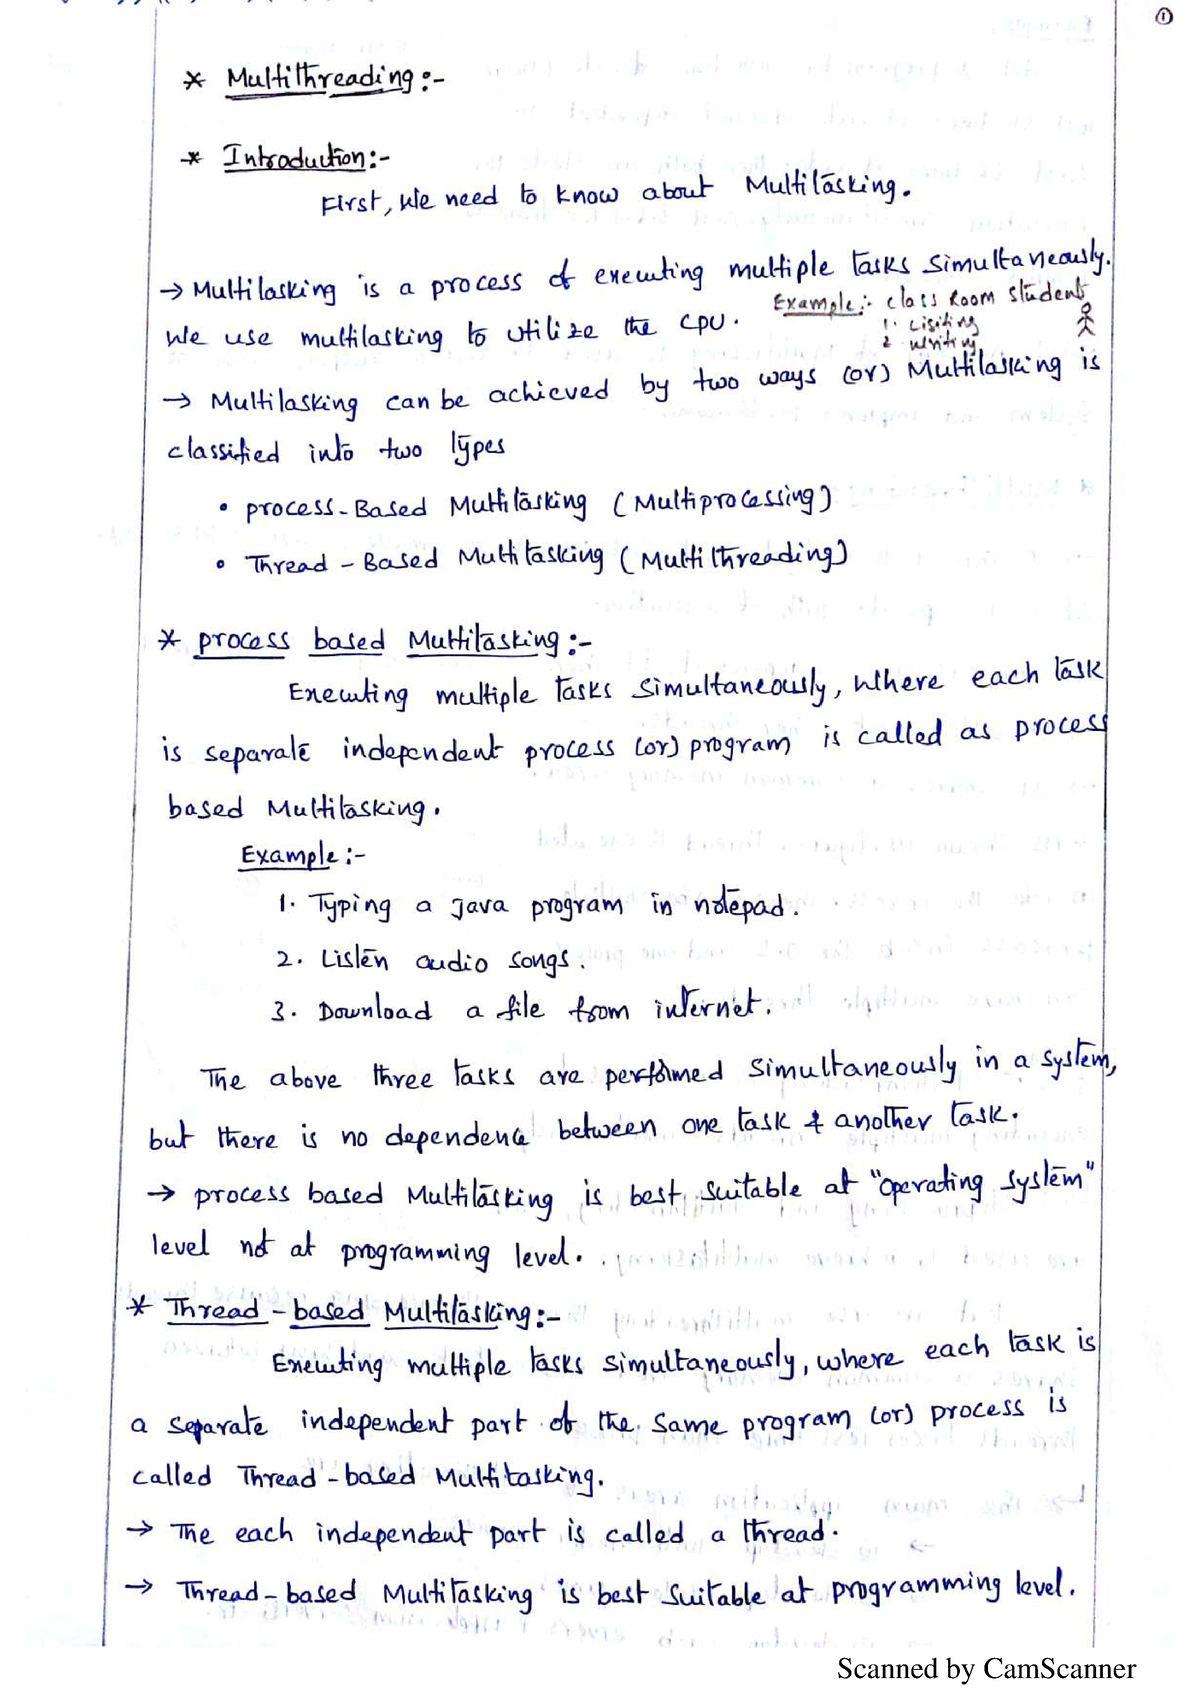 ①
* Multithreading:-
* Introduction:-
First, We need to know about Multitasking.
→ Multitasking is a process of executing multiple tasks simultaneously.
We use multitasking to utilize the CPU.
Example:- Class Room student
1. Lisiting
2 writing
→ Multitasking can be achieved by two ways (or) Multitasking is
classified into two types
• process-Based Multitasking (Multiprocessing)
• Thread - Based Multitasking (Multithreading)
* process based Multitasking:-
Executing multiple tasks simultaneously, where each task
is separate independent process (or) program is called as process
based Multitasking.
Example:-
1. Typing a java program in notepad.
2. Listen audio songs.
3. Download a file from internet.
The above three tasks are performed simultaneously in a system,
but there is no dependence between one task & another task.
→ process based Multitasking is best suitable at "operating system"
level not at programming level.
* Thread - based Multitasking:-
Executing multiple tasks simultaneously, where each task is
a separate independent part of the same program (or) process is
called Thread-based Multitasking.
→ The each independent part is called a thread.
→ Thread-based Multitasking is best suitable at programming level.
Scanned by CamScanner